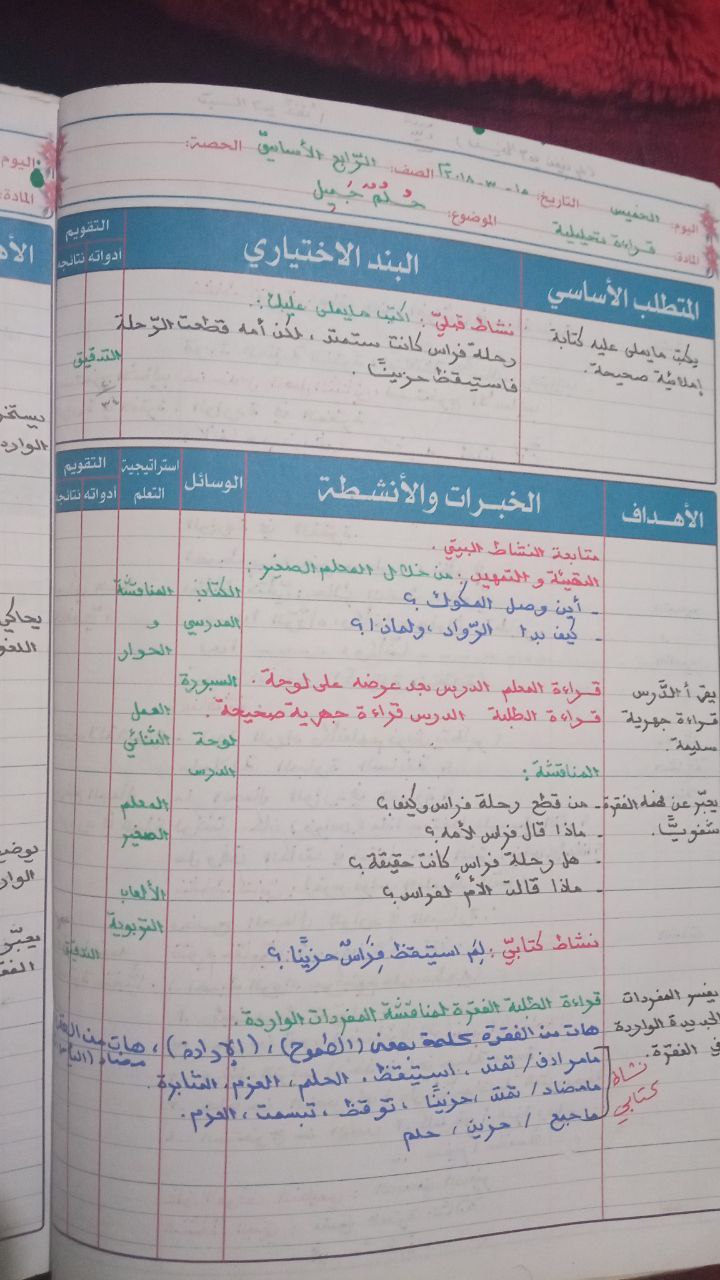 اليوم: الخميس التاريخ: ١٥-٣-٢٠١٨م الصف: الرّابع الأساسيّ الحصة:
المادة: قراءة تحليلية الموضوع: حُلُمٌ جَميل
المتطلب الأساسي
البند الاختياري
التقويم
ادواته نتائجه
يكتب مايملى عليه كتابة
إملائية صحيحة.
نشاط قبليّ: اكتب مايملى عليك:
رحلة فراس كانت ستمتد، لكن أمه قطعت الرّحلة
فاستيقظ حزينًا.
التدقيق
الأهداف
الخبرات والأنشطة
الوسائل
استراتيجية
التعلم
التقويم
أدواته نتائجه
متابعة النشاط البيتي.
التهيئة و التمهيد: من خلال المعلم الصغير:
- أين وصل المكوك؟
- كيف بدا الرّواد، ولماذا؟
يقرأ الدّرس
قراءة جهرية
سليمة.
قراءة المعلم الدرس بعد عرضه على لوحة.
قراءة الطلبة الدرس قراءة جهرية صحيحة.
المناقشة:
يعبّر عن فهمه الفقرة
شفويًّا.
- من قطع رحلة فراس وكيف؟
- ماذا قال فراس لأمه؟
- هل رحلة فراسٍ كانت حقيقة؟
- ماذا قالت الأم لفراس؟
نشاط كتابيّ: لِمَ استيقظ فِراسٌ حزينًا؟
يفسر المفردات
الجديدة الواردة
في الفقرة.
قراءة الطلبة الفقرة لمناقشة المفردات الواردة.
هات من الفقرة كلمة بمعنى (الطموح)، (الإرادة)، هات من
مضاد
نشاط
كتابي
مامرادف/ تمتد، استيقظ، الحلم، العزم، المثابرة.
مامضاد/ تمتد، حزينًا، توقظ، تبسمت، العزم.
ماجمع / حزين، حلم
الكتاب
المدرسي
السبورة
لوحة
الدرس
المناقشة
و
الحوار
العمل
الثنائي
المعلم
الصغير
الألعاب
التربوية
التدقيق
اليوم
المادة:
الأه
الوارد
يحاكي